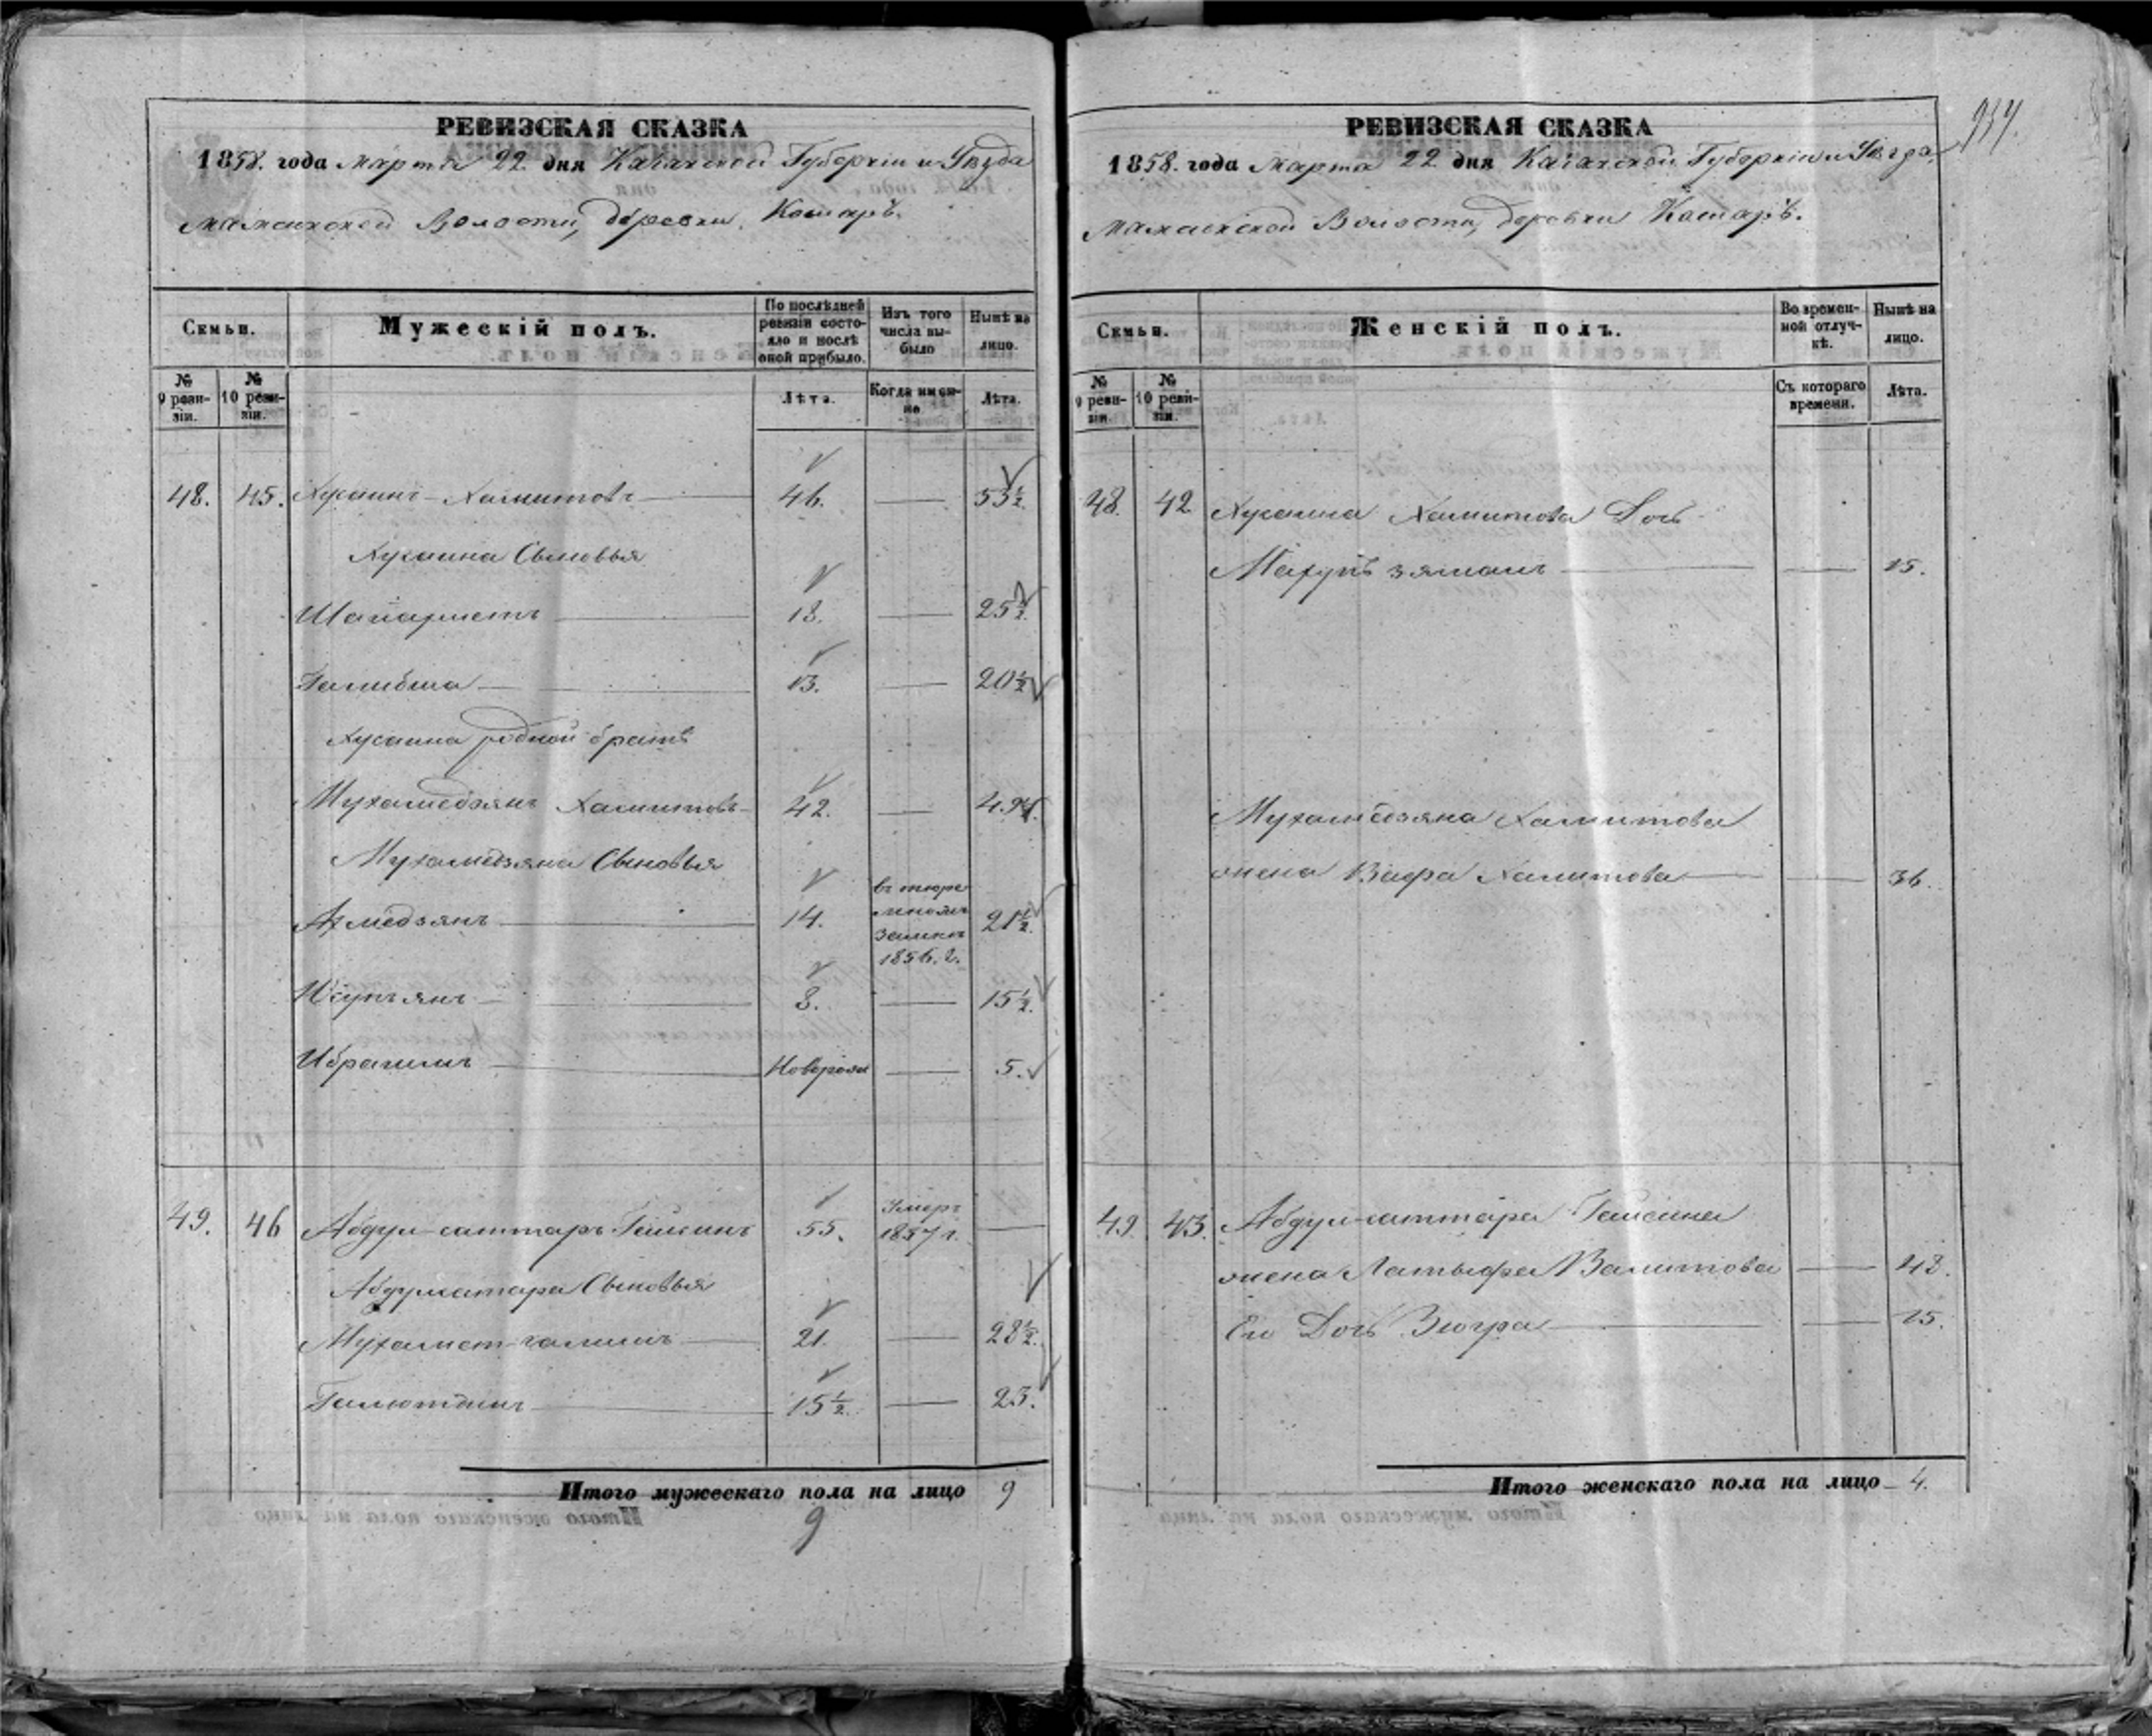 РЕВИЗСКАЯ СКАЗКА
1858. года Марта 22 дня Казанской Губернiи и Уѣзда
Мамсинской Волости, деревни Кошаръ.
Семьи.
Мужескiй полъ.
По послѣдней ревизiи состояло и послѣ оной прибыло.
Изъ того числа выбыло
Нынѣ на лицо.
№ 9 ревизiи.
№ 10 ревизiи.
Лѣта.
Когда именно
Лѣта.
48. 45. Хусаинъ Хамитовъ 46. — 53½
Хусаина Сыновья
Шагiахметъ 18. — 25½
Галибша 13. — 20½
Хусаина родной братъ
Мухамедзянъ Хамитовъ 42. — 49½
Мухамедзяна Сыновья
Ахмедзянъ 14. въ тюремномъ замкѣ 1856. г. 21½
Юсупъянъ 8. — 15½
Ибрагимъ Новорожд — 5.
49. 46 Абдул-саттаръ Гайсинъ 55. Умеръ 1857 г. —
Абдулсатара Сыновья
Мухамет-галимъ 21. — 28½
Галютдинъ 15½ — 23.
Итого мужескаго пола на лицо 9
9
РЕВИЗСКАЯ СКАЗКА
1858. года Марта 22 дня Казанской Губернiи и Уѣзда
Мамсинской Волости, деревни Кошаръ.
Семьи.
Женскiй полъ.
Во временной отлучкѣ.
Нынѣ на лицо.
№ 9 ревизiи.
№ 10 ревизiи.
Съ котораго времени.
Лѣта.
48. 42 Хусаина Хамитова Дочь
— 15.
Мухамедзяна Хамитова
жена Вафа Хамитова — 36.
49. 43. Абдул-саттара Гайсина
жена Латыфа Валитова — 48.
Его Дочь Зюгра — 15.
Итого женскаго пола на лицо 4.